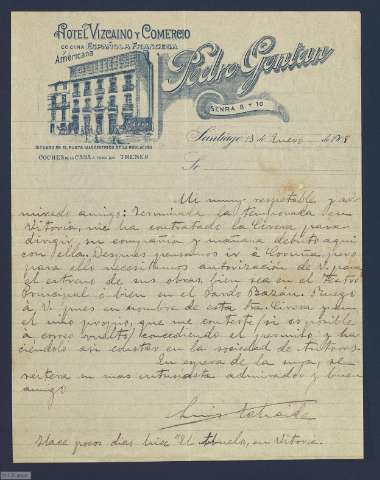 HOTEL VIZCAINO Y COMERCIO
COCINA ESPAÑOLA FRANCESA
Américana
Pedro Gontan
SENRA 8 Y 10
SITUADO EN EL PUNTO MAS CÉNTRICO DE LA POBLACIÓN
COCHES DE LA CASA Á TODOS LOS TRENES
Santiago 13 de Enero de 19
Sr.
Mi muy respetable y ad-
mirado amigo: Terminada la temporada en
Vitoria, me ha contratado la Cirera para
dirigir su compañia y mañana debuto aquí
con ella. Despues pensamos ir á Coruña, pero
para ello necesitamos autorización de V. para
el estreno de sus obras, bien sea en el teatro
Principal ó bien en el Pardo Bazán. Ruego
á V. pues en nombre de esta Sra. Cirera y en
el mio propio, que me conteste (si es posible
á correo vuelto) concediendo el permiso y ha-
ciendolo así constar en la sociedad de Autores.
En espera de la suya, se
reitera su mas entusiasta admirador y buen
amigo
Luis Echaide
Hace pocos dias hice "El Abuelo," en Vitoria.